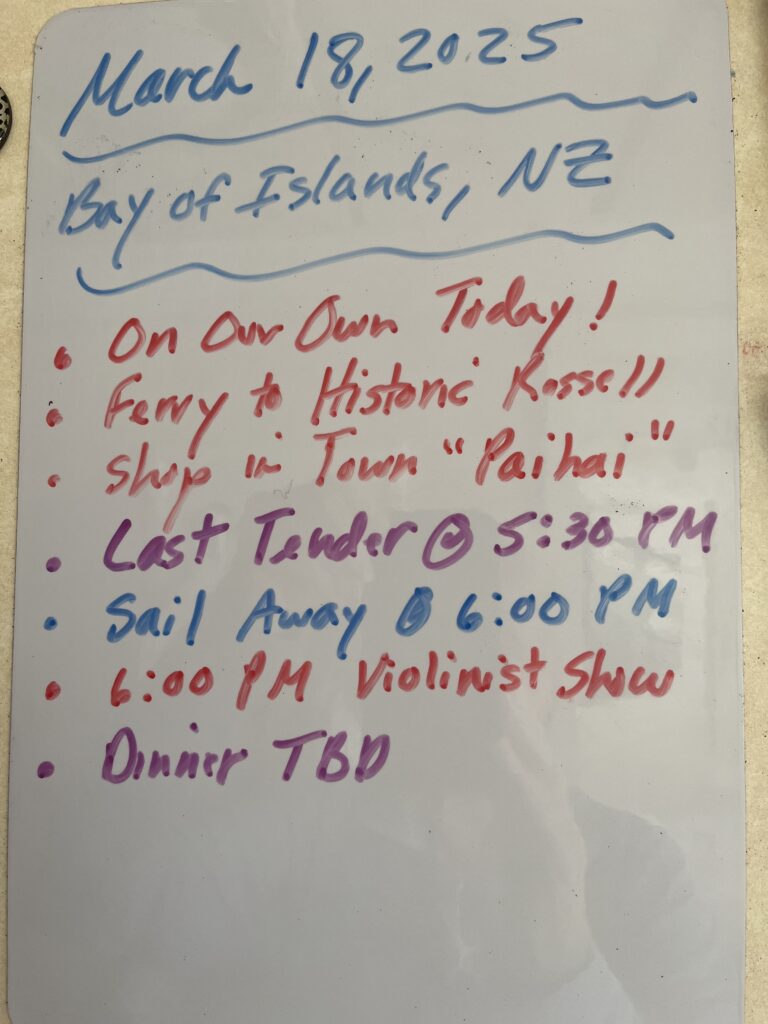 March 18, 2025
Bay of Islands, NZ
• On Our Own Today!
• Ferry to Historic Russell
• Shop in Town "Paihai"
• Last Tender @ 5:30 PM
• Sail Away @ 6:00 PM
• 6:00 PM Violinist Show
• Dinner TBD